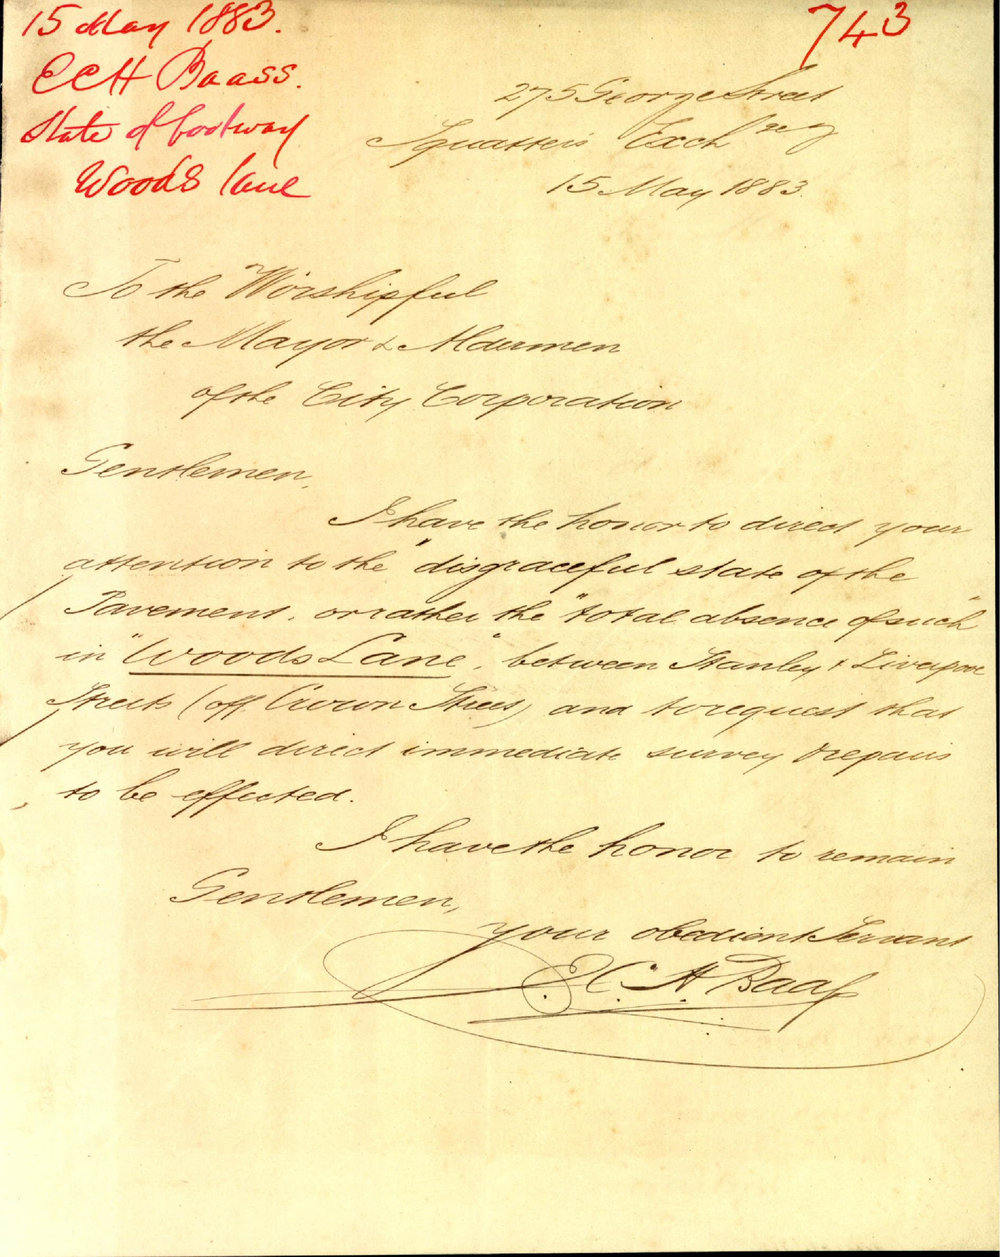 15 May 1883.
E C H Baass.
State of footway
Woods Lane
743
275 George Street
Squatters Exch
15 May 1883.
To the Worshipful
the Mayor & Aldermen
of the City Corporation
Gentlemen,
I have the honor to direct your
attention to the "disgraceful state of the
Pavement, or rather the "total absence of such"
in "Woods Lane", between Stanley & Liverpool
Streets (off Crown Street) and to request that
you will direct immediate survey & repairs
to be effected.
I have the honor to remain
Gentlemen,
your obedient Servant
E. C. H Baass